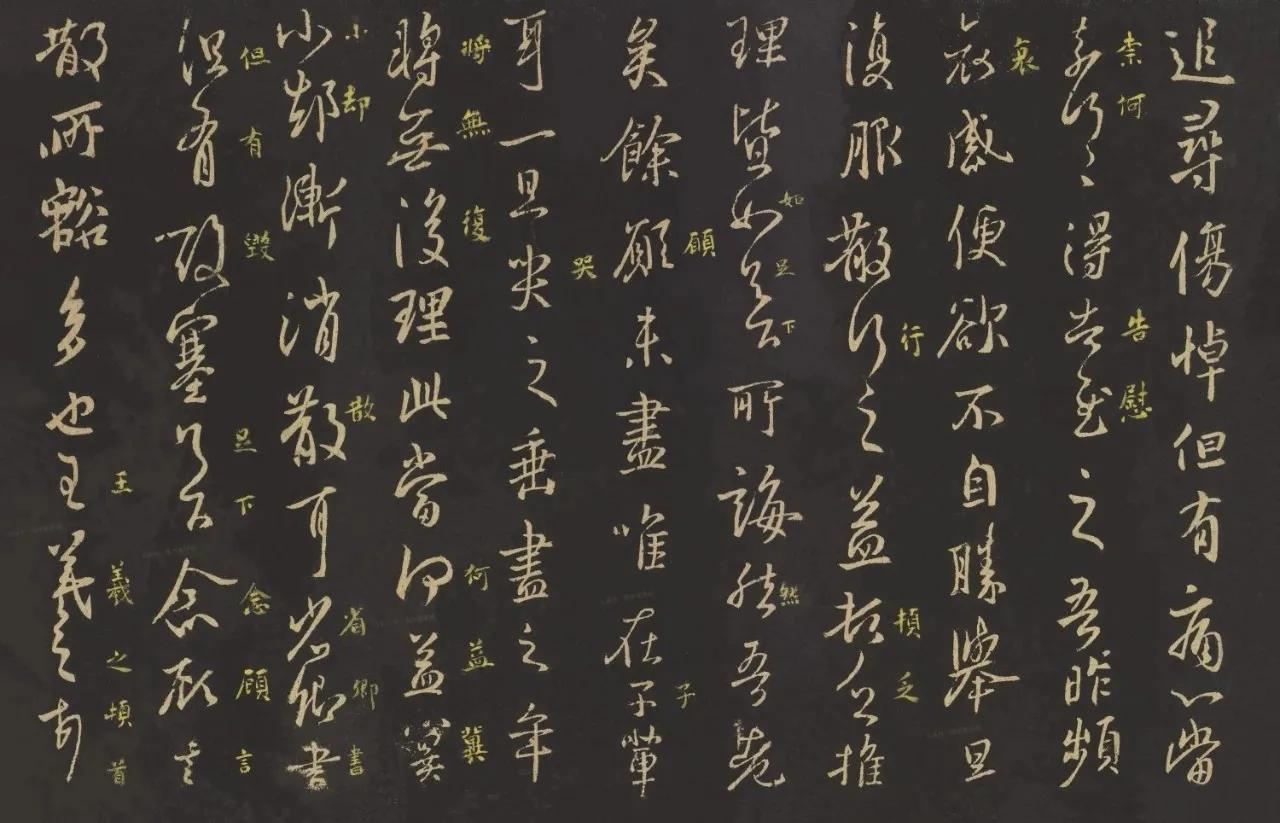 追尋傷悼但有痛心當
柰何 告慰
奈何〻得告慰之吾昨頻
哀
哀感便欲不自勝舉旦
行 頓乏
復服散行之益頓乏推
如足下 然
理皆如足下所誨然吾老
願 子
矣餘願未盡唯在子輩
哭
耳一旦哭之垂盡之年
將無復 何益冀
將無復理此當何益冀
小却 散 省卿書
小却漸消散耳省卿書
但有毀 足下念顧言
但有毀塞足下念顧言
王羲之頓首
散所豁多也王羲之頓首